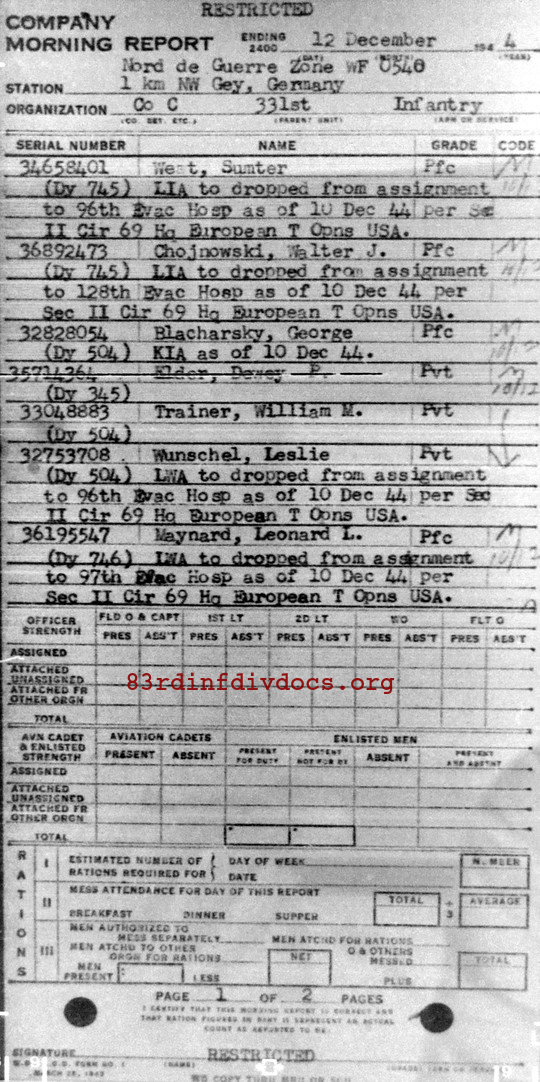 RESTRICTED
COMPANY
MORNING REPORT ENDING 2400 12 December 194 4
Nord de Guerre Zone WF 0548
STATION 1 km NW Gey, Germany
ORGANIZATION Co C 331st Infantry
(CO. DET. ETC.) (PARENT UNIT) (ARM OR SERVICE)
SERIAL NUMBER NAME GRADE CODE
34658401 West, Sumter Pfc
(Dy 745) LIA to dropped from assignment
to 96th Evac Hosp as of 10 Dec 44 per Sec
II Cir 69 Hq European T Opns USA.
36892473 Chojnowski, Walter J. Pfc
(Dy 745) LIA to dropped from assignment
to 128th Evac Hosp as of 10 Dec 44 per
Sec II Cir 69 Hq European T Opns USA.
32828054 Blacharsky, George Pfc
(Dy 504) KIA as of 10 Dec 44.
35714364 Elder, Dewey P. Pvt
(Dy 345)
33048883 Trainer, William M. Pvt
(Dy 504)
32753708 Wunschel, Leslie Pvt
(Dy 504) LWA to dropped from assignment
to 96th Evac Hosp as of 10 Dec 44 per Sec
II Cir 69 Hq European T Opns USA.
36195547 Maynard, Leonard L. Pfc
(Dy 746) LWA to dropped from assignment
to 97th Evac Hosp as of 10 Dec 44 per
Sec II Cir 69 Hq European T Opns USA.
OFFICER STRENGTH FLD O & CAPT 1ST LT 2D LT WO FLT O
PRES ABS'T PRES ABS'T PRES ABS'T PRES ABS'T PRES ABS'T
ASSIGNED
ATTACHED UNASSIGNED
83rdinfdivdocs.org
ATTACHED FR OTHER ORGN
TOTAL
AVN CADET & ENLISTED STRENGTH AVIATION CADETS ENLISTED MEN
PRESENT ABSENT PRESENT FOR DUTY PRESENT NOT FOR DY ABSENT PRESENT AND ABSENT
ASSIGNED
ATTACHED UNASSIGNED
ATTACHED FR OTHER ORGN
TOTAL
RATIONS
I ESTIMATED NUMBER OF RATIONS REQUIRED FOR DAY OF WEEK DATE NUMBER
II MESS ATTENDANCE FOR DAY OF THIS REPORT TOTAL ÷ 3 AVERAGE
BREAKFAST DINNER SUPPER
III MEN AUTHORIZED TO MESS SEPARATELY MEN ATCHD FOR RATIONS
MEN ATCHD TO OTHER ORGN FOR RATIONS NET O & OTHERS MESSED TOTAL
MEN PRESENT LESS PLUS
PAGE 1 OF 2 PAGES
I CERTIFY THAT THIS MORNING REPORT IS CORRECT AND
THAT RATION FIGURES IN PART III REPRESENT AN ACTUAL
COUNT AS REPORTED TO ME
SIGNATURE
RESTRICTED